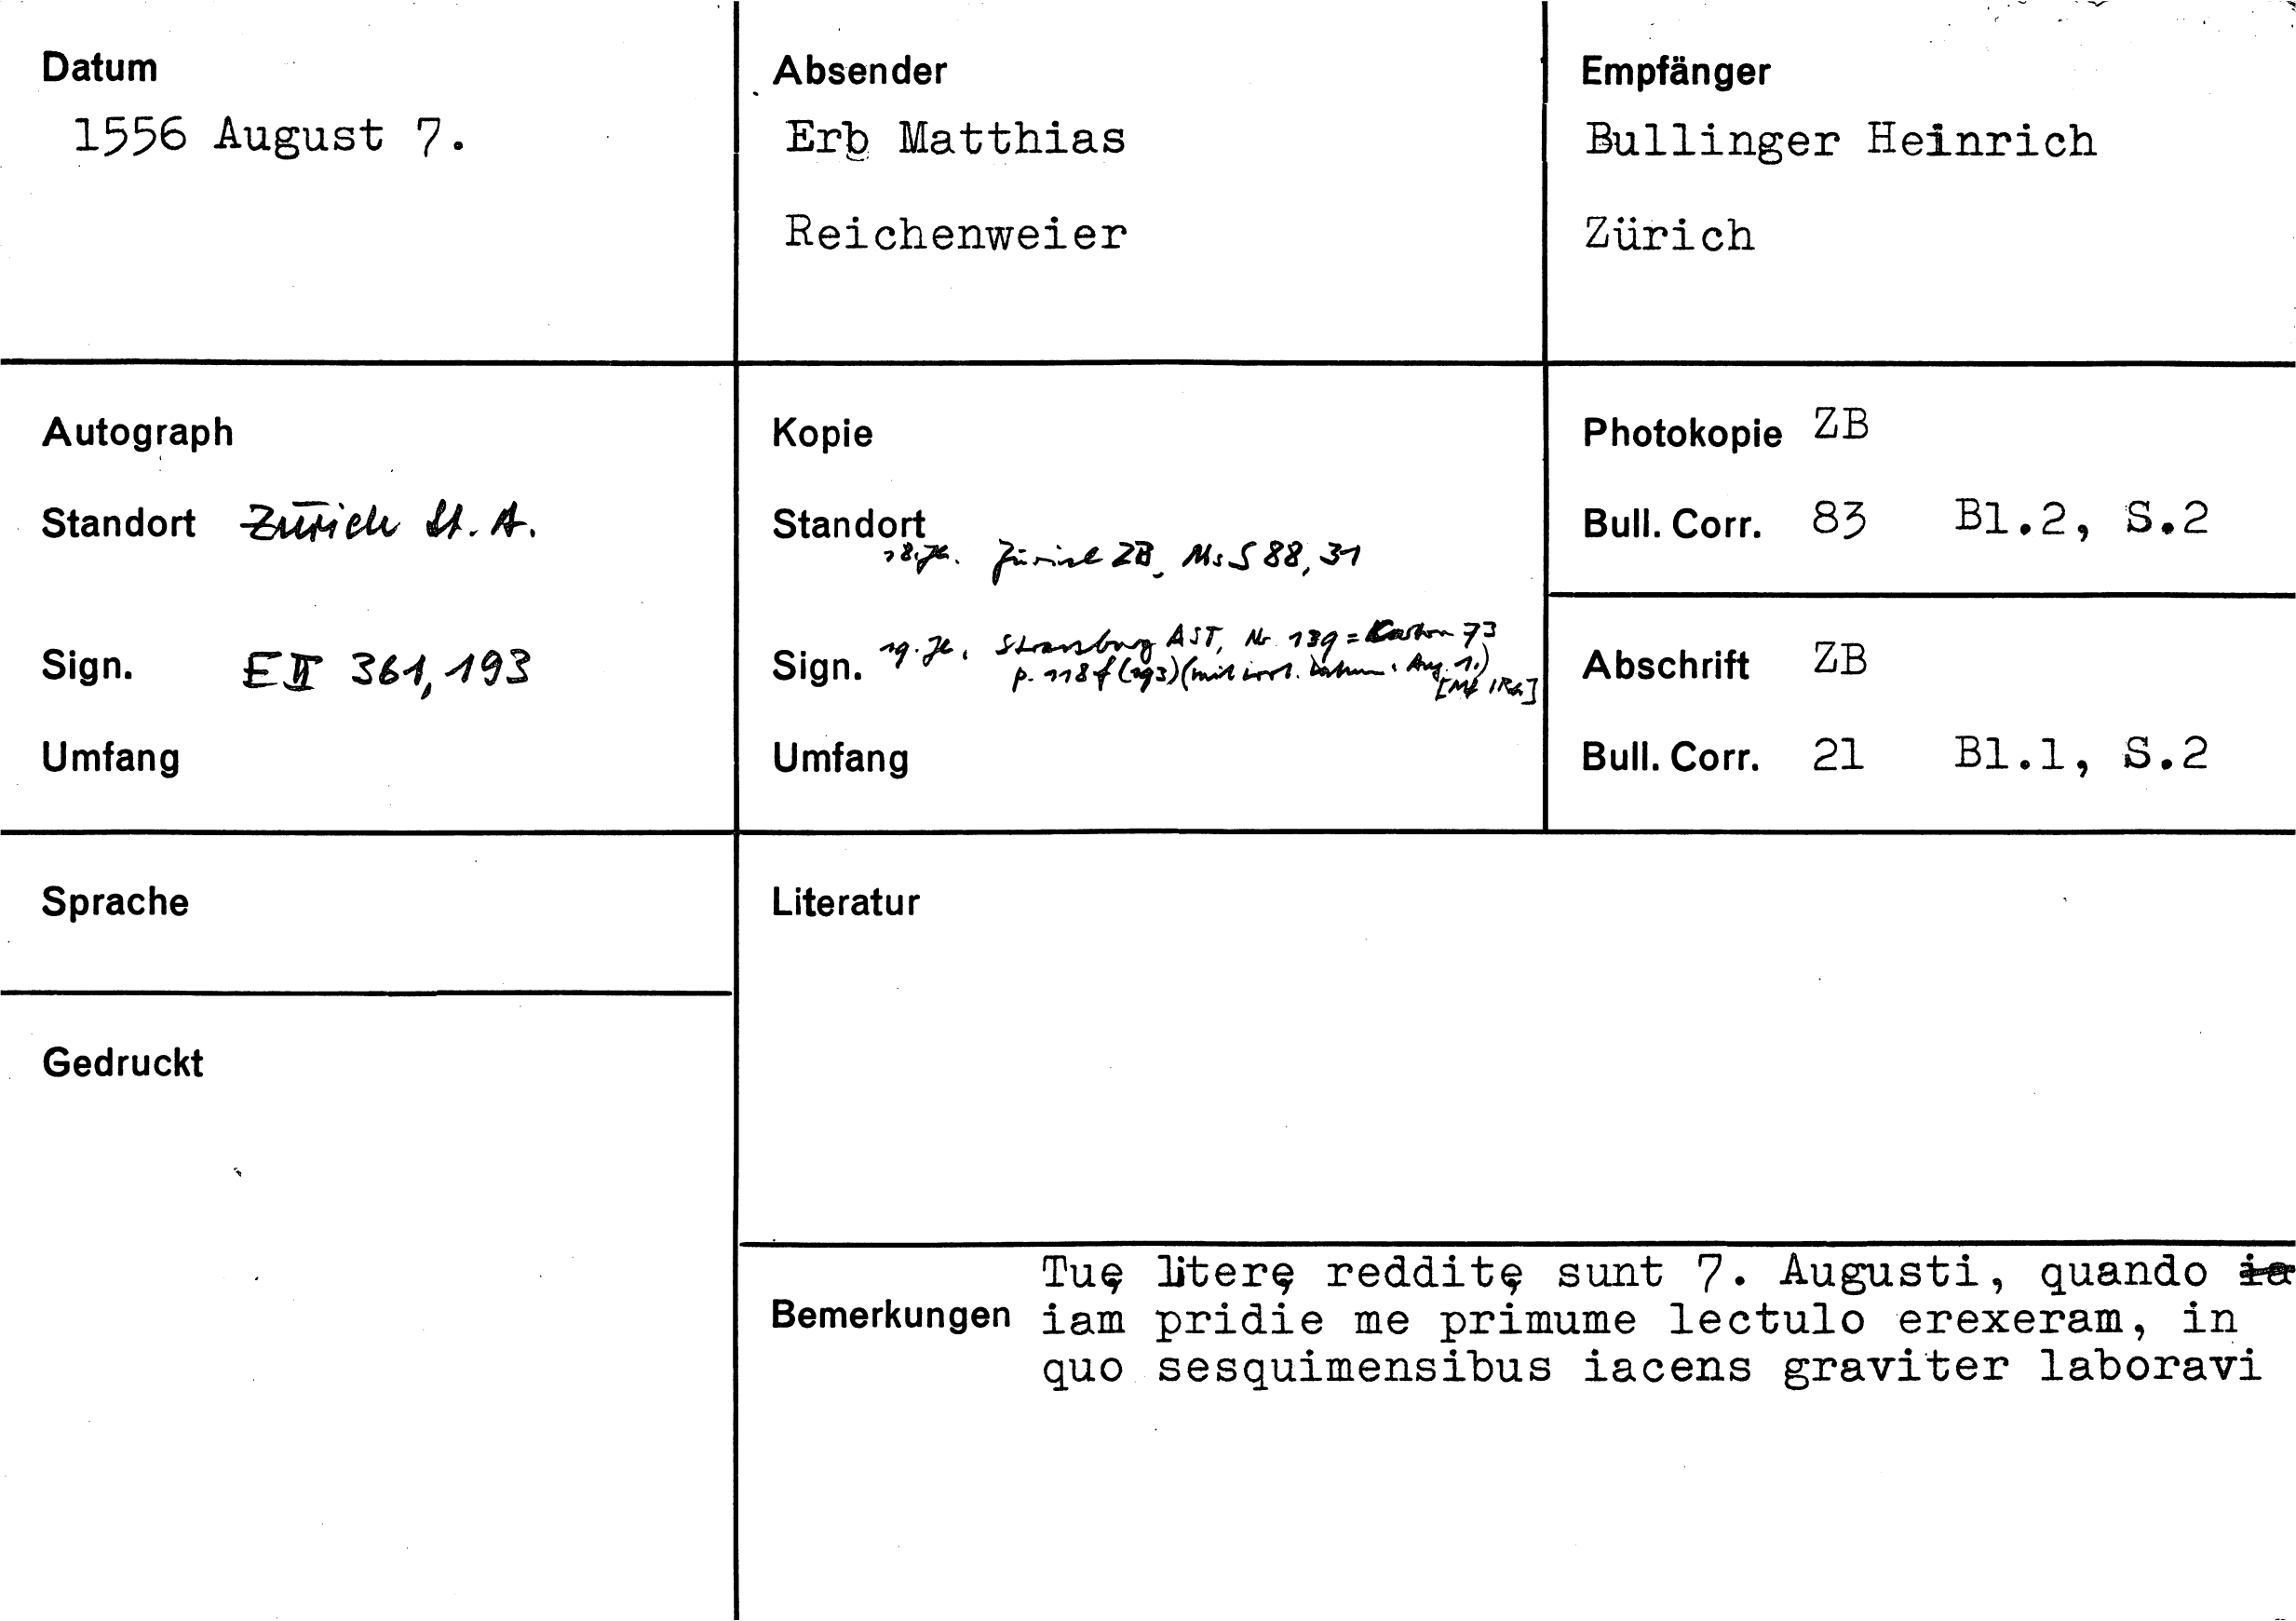 Datum
1556 August 7.
Absender
Erb Matthias
Reichenweier
Empfänger
Bullinger Heinrich
Zürich
Autograph
Standort Zürich St. A.
Sign. E II 361, 193
Umfang
Kopie
Standort
18. Jh. Zürich ZB, Ms S 88, 31
Sign. 19. Jh. Strassburg AST, Nr. 139 = Carton 73
p. 118 f (193) (mit irrt. Datum: Aug. 1.)
Umfang
Photokopie ZB
Bull. Corr. 83 Bl.2, S.2
Abschrift ZB
Bull. Corr. 21 Bl.1, S.2
Sprache
Gedruckt
Literatur
Bemerkungen
Tuę literę redditę sunt 7. Augusti, quando ia
iam pridie me primume lectulo erexeram, in
quo sesquimensibus iacens graviter laboravi